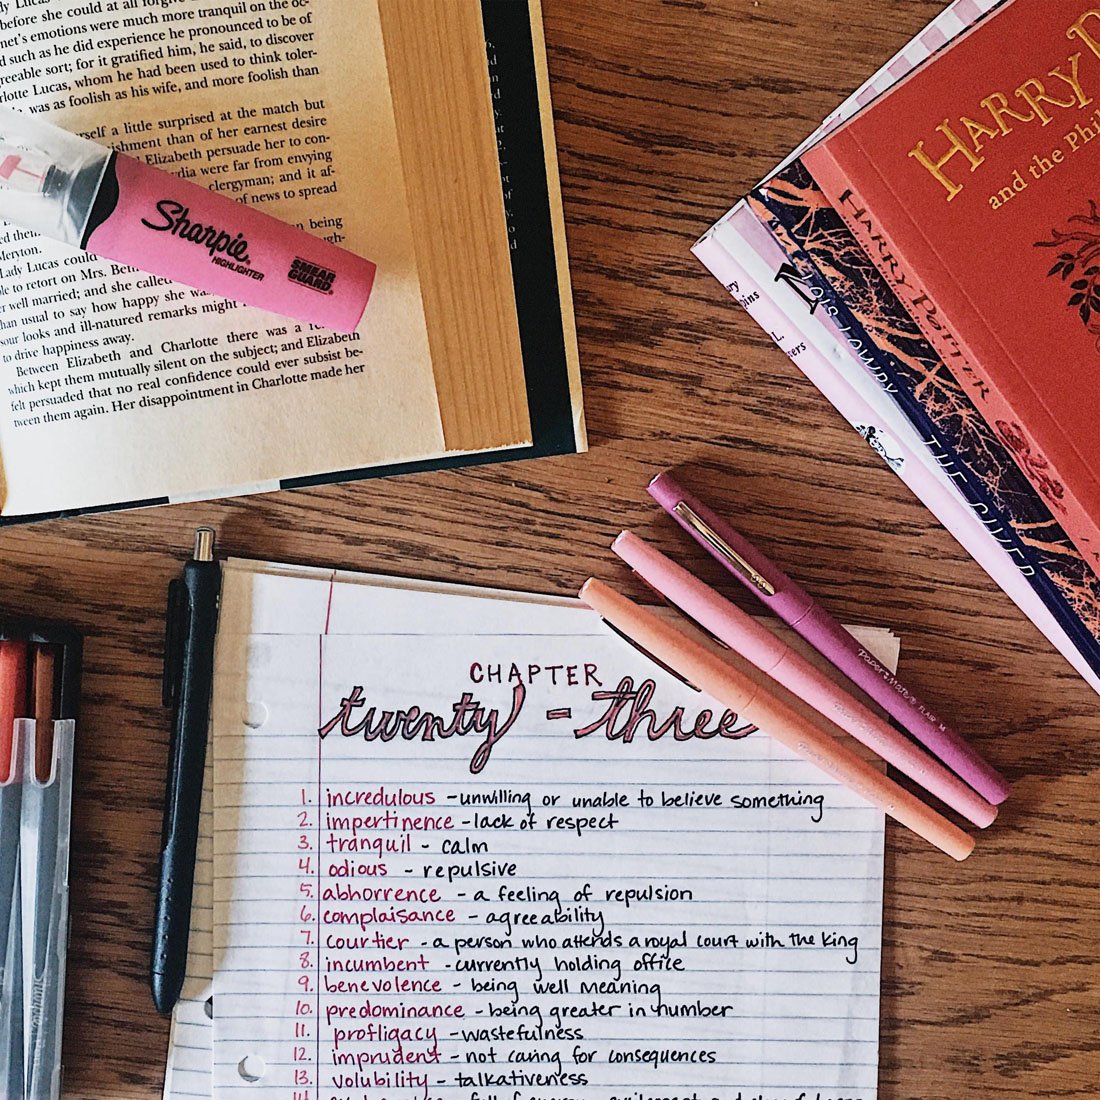 before she could at all forgive
net's emotions were much more tranquil on the oc-
d such as he did experience he pronounced to be of
reeable sort; for it gratified him, he said, to discover
rlotte Lucas, whom he had been used to think toler-
was as foolish as his wife, and more foolish than
rself a little surprised at the match but
ishment than of her earnest desire
Elizabeth persuade her to con-
dia were far from envying
clergyman; and it af-
of news to spread
being
Meryton.
Lady Lucas could
le to retort on Mrs. Ben
r well married; and she called
han usual to say how happy she wa
sour looks and ill-natured remarks might
to drive happiness away.
Between Elizabeth and Charlotte there was a
which kept them mutually silent on the subject; and Elizabeth
felt persuaded that no real confidence could ever subsist be-
tween them again. Her disappointment in Charlotte made her
Sharpie
HIGHLIGHTER
SMEAR
GUARD
HARRY
and the Phil
HARRY POTTER
LOIS LOWRY THE GIVER
Paper Mate FLAIR M
CHAPTER
twenty-three
1. incredulous - unwilling or unable to believe something
2. impertinence - lack of respect
3. tranquil - calm
4. odious - repulsive
5. abhorrence - a feeling of repulsion
6. complaisance - agreeability
7. courtier - a person who attends a royal court with the king
8. incumbent - currently holding office
9. benevolence - being well meaning
10. predominance - being greater in number
11. profligacy - wastefulness
12. imprudent - not caring for consequences
13. volubility - talkativeness